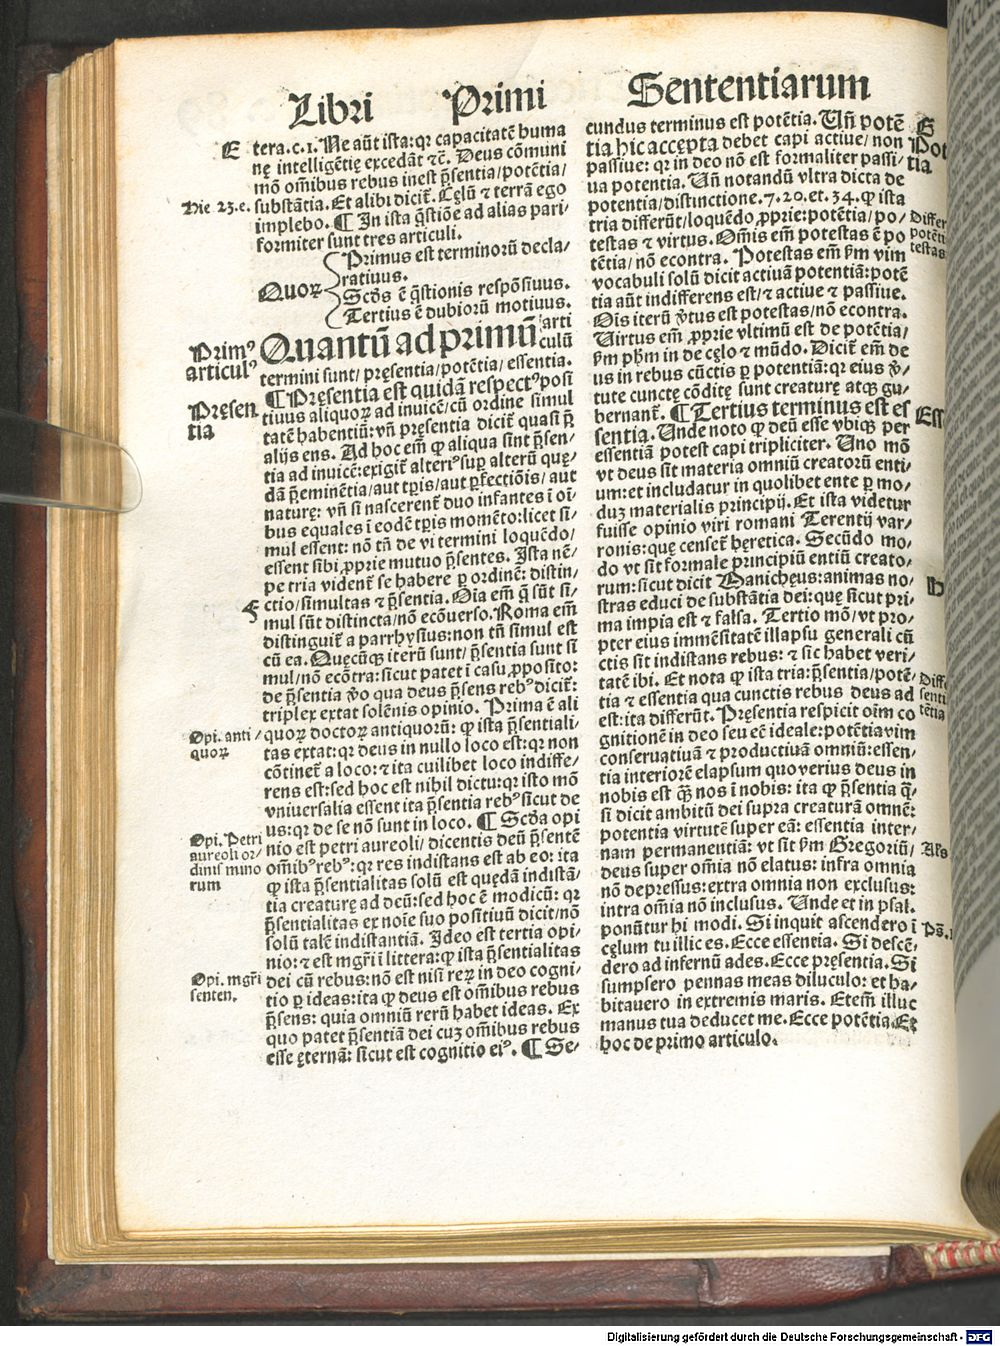 Libri Primi Sententiarum
E
tera.c.1. Ne aūt ista: qꝛ capacitatē huma
nę intelligētię excedāt ⁊c̄. Deus cōmuni
mō om̄ibus rebus inest p̄sentia/potētia/
Hie 23.e.
substātia. Et alibi dicit̄. Cęlū ⁊ terrā ego
implebo. ¶ In ista q̄stiōe ad alias pari-
formiter sunt tres articuli.
Quoꝝ
Primus est terminorū decla/
ratiuus.
Scd̄s ē q̄stionis respōsiuus.
Tertius ē dubiorū motiuus.
Primꝰ
articulꝰ
Quantū ad primū arti
culū
termini sunt/pręsentia/potētia/essentia.
Pręsen
tia
¶ Pręsentia est quidā respectꝰ posi
tiuus aliquoꝝ ad inuicē/cū ordine simul
tatē habentiū: vn̄ pręsentia dicit̄ quasi p̄
alijs ens. Ad hoc em̄ ꝙ aliqua sint p̄sen-
tia ad inuicē: exigit̄ alteriꝰ suꝑ alterū quę-
dā p̄eminētia/aut tꝑis/aut ꝑfectiōis/aut
naturę: vn̄ si nascerent̄ duo infantes ī oī-
bus equales ī eodē tꝑis momēto: licet si-
mul essent: nō tn̄ de vi termini loquēdo/
essent sibi ꝓprie mutuo p̄sentes. Ista nē-
pe tria vident̄ se habere ꝑ ordinē: distin-
F
ctio/simultas ⁊ p̄sentia. Oīa em̄ q̄ sūt si-
mul sūt distincta/nō ecōuerso. Roma em̄
distinguit̄ a parrhysius: non tn̄ simul est
cū ea. Quęcūqꝫ iterū sunt/p̄sentia sunt si
mul/nō ecōtra: sicut patet ī casu ꝓposito:
de p̄sentia v̄o qua deus p̄sens rebꝰ dicit̄:
triplex extat solēnis opinio. Prima ē ali
Opi. anti/
quoꝝ
quoꝝ doctoꝝ antiquorū: ꝙ ista p̄sentiali-
tas extat: qꝛ deus in nullo loco est: qꝛ non
cōtinet̄ a loco: ⁊ ita cuilibet loco indiffe/
rens est: sed hoc est nihil dictu: qꝛ isto mō
vniuersalia essent ita p̄sentia rebꝰ sicut de
us: qꝛ de se nō sunt in loco. ¶ Scd̄a opi
Opi. Petri
aureoli or/
dinis mino
rum
nio est petri aureoli/dicentis deū p̄sentē
om̄ibꝰ rebꝰ: qꝛ res indistans est ab eo: ita
ꝙ ista p̄sentialitas solū est quędā indistā/
tia creaturę ad deū: sed hoc ē modicū: qꝛ
p̄sentialitas ex noīe suo positiuū dicit/nō
solū talē indistantiā. Ideo est tertia opi-
nio: ⁊ est mgr̄i ī littera: ꝙ ista p̄sentialitas
Opi. mgr̄i
senten.
dei cū rebus: nō est nisi reꝝ in deo cogni-
tio ꝑ ideas: ita ꝙ deus est om̄ibus rebus
p̄sens: quia omniū rerū habet ideas. Ex
quo patet p̄sentiā dei cuꝫ om̄ibus rebus
esse ęternā: sicut est cognitio eiꝰ. ¶ Se/
cundus terminus est potētia. Un̄ potē
G
Pot
tia
tia hic accepta debet capi actiue/non
passiue: qꝛ in deo nō est formaliter passi/
ua potentia. Un̄ notandū vltra dicta de
potentia/distinctione.7.20.et.34. ꝙ ista
tria differūt/loquēdo ꝓprie: potētia/po/
Differ
potēti
testas
testas ⁊ virtus. Om̄is em̄ potestas ē po
tētia/nō econtra. Potestas em̄ s̄m vim
vocabuli solū dicit actiuā potentiā: potē
tia aūt indifferens est/⁊ actiue ⁊ passiue.
Oīs iterū v̄tus est potestas/nō econtra.
Uirtus em̄ ꝓprie vltimū est de potētia/
s̄m ph̄m in de cęlo ⁊ mūdo. Dicit̄ em̄ de
us in rebus cūctis ꝑ potentiā: qꝛ eius v̄-
tute cunctę cōditę sunt creaturę atqꝫ gu-
bernant̄. ¶ Tertius terminus est es
Ess
sentia. Unde noto ꝙ deū esse vbiqꝫ per
essentiā potest capi tripliciter. Uno mō
vt deus sit materia omniū creatorū enti-
um: et includatur in quolibet ente ꝑ mo/
duꝫ materialis principij. Et ista videtur
fuisse opinio viri romani Terentij var/
ronis: quę censet̄ hęretica. Secūdo mo/
do vt sit formale principiū entiū creato/
rum: sicut dicit Manichęus: animas no/
stras educi de substātia dei: quę sicut pri/
ma impia est ⁊ falsa. Tertio mō/vt pro/
pter eius immēsitatē illapsu generali cū
ctis sit indistans rebus: ⁊ sic habet veri/
tatē ibi. Et nota ꝙ ista tria: p̄sentia/potē-
tia ⁊ essentia qua cunctis rebus deus ad
est: ita differūt. Pręsentia respicit oīm co
gnitionē in deo seu eē ideale: potētia vim
conseruatiuā ⁊ productiuā omniū: essen-
tia interiorē elapsum quo verius deus in
nobis est q̄ꝫ nos ī nobis: ita ꝙ p̄sentia q̄-
si dicit ambitū dei supra creaturā omnē:
potentia virtutē super eā: essentia inter/
nam permanentiā: vt sit s̄m Gregoriū/
deus super om̄ia nō elatus: infra omnia
nō depressus: extra omnia non exclusus:
intra om̄ia nō inclusus. Unde et in psal.
ponūtur hi modi. Si inquit ascendero ī
Ps̄.1
cęlum tu illic es. Ecce essentia. Si descē-
dero ad infernū ades. Ecce pręsentia. Si
sumpsero pennas meas diluculo: et ha-
bitauero in extremis maris. Etem̄ illuc
manus tua deducet me. Ecce potētia. Et
hoc de primo articulo.
Digitalisierung gefördert durch die Deutsche Forschungsgemeinschaft - DFG